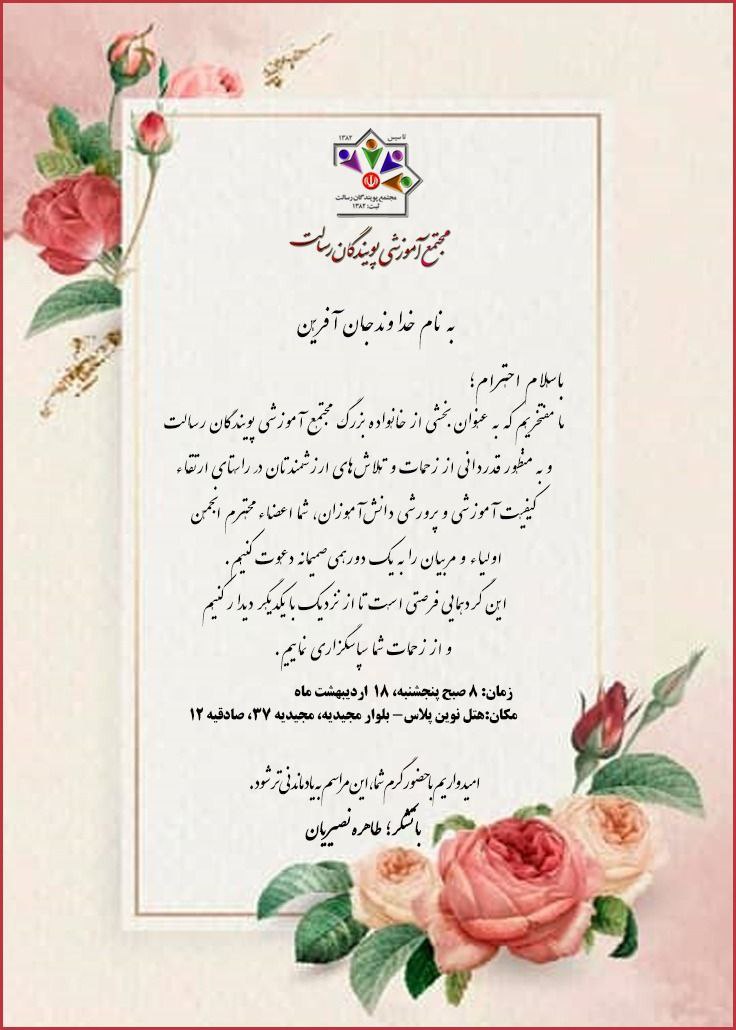 تاسیس ۱۳۸۲
مجتمع پویندگان رسالت
ثبت: ۱۳۸۲
مجتمع آموزشی پویندگان رسالت
به نام خداوند جان آفرین
با سلام احترام؛
ما مفتخریم که به عنوان بخشی از خانواده بزرگ مجتمع آموزشی پویندگان رسالت
و به منظور قدردانی از زحمات و تلاش‌های ارزشمندتان در راستای ارتقاء
کیفیت آموزشی و پرورشی دانش‌آموزان، شما اعضاء محترم انجمن
اولیاء و مربیان را به یک دورهمی صمیمانه دعوت کنیم.
این گردهمایی فرصتی است تا از نزدیک با یکدیگر دیدار کنیم
و از زحمات شما سپاسگزاری نماییم.
زمان: ۸ صبح پنجشنبه، ۱۸ اردیبهشت ماه
مکان:هتل نوین پلاس- بلوار مجیدیه، مجیدیه ۳۷، صادقیه ۱۲
امیدواریم با حضور گرم شما، این مراسم به یادماندنی‌تر شود.
با تشکر؛ طاهره نصیریان